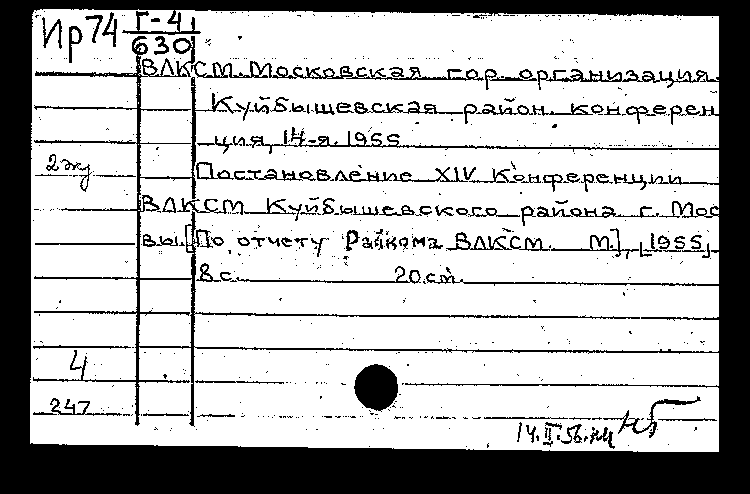 Ир74 Г-4
630
ВЛКСМ. Московская гор. организация.
Куйбышевская район. конферен
ция, 14-я. 1955
2эк
Постановление XIV Конференции
ВЛКСМ Куйбышевского района г. Мос
вы. [По отчету Райкома ВЛКСМ. М.], [1955]
8 с. 20 см.
4
247
14.II.56.